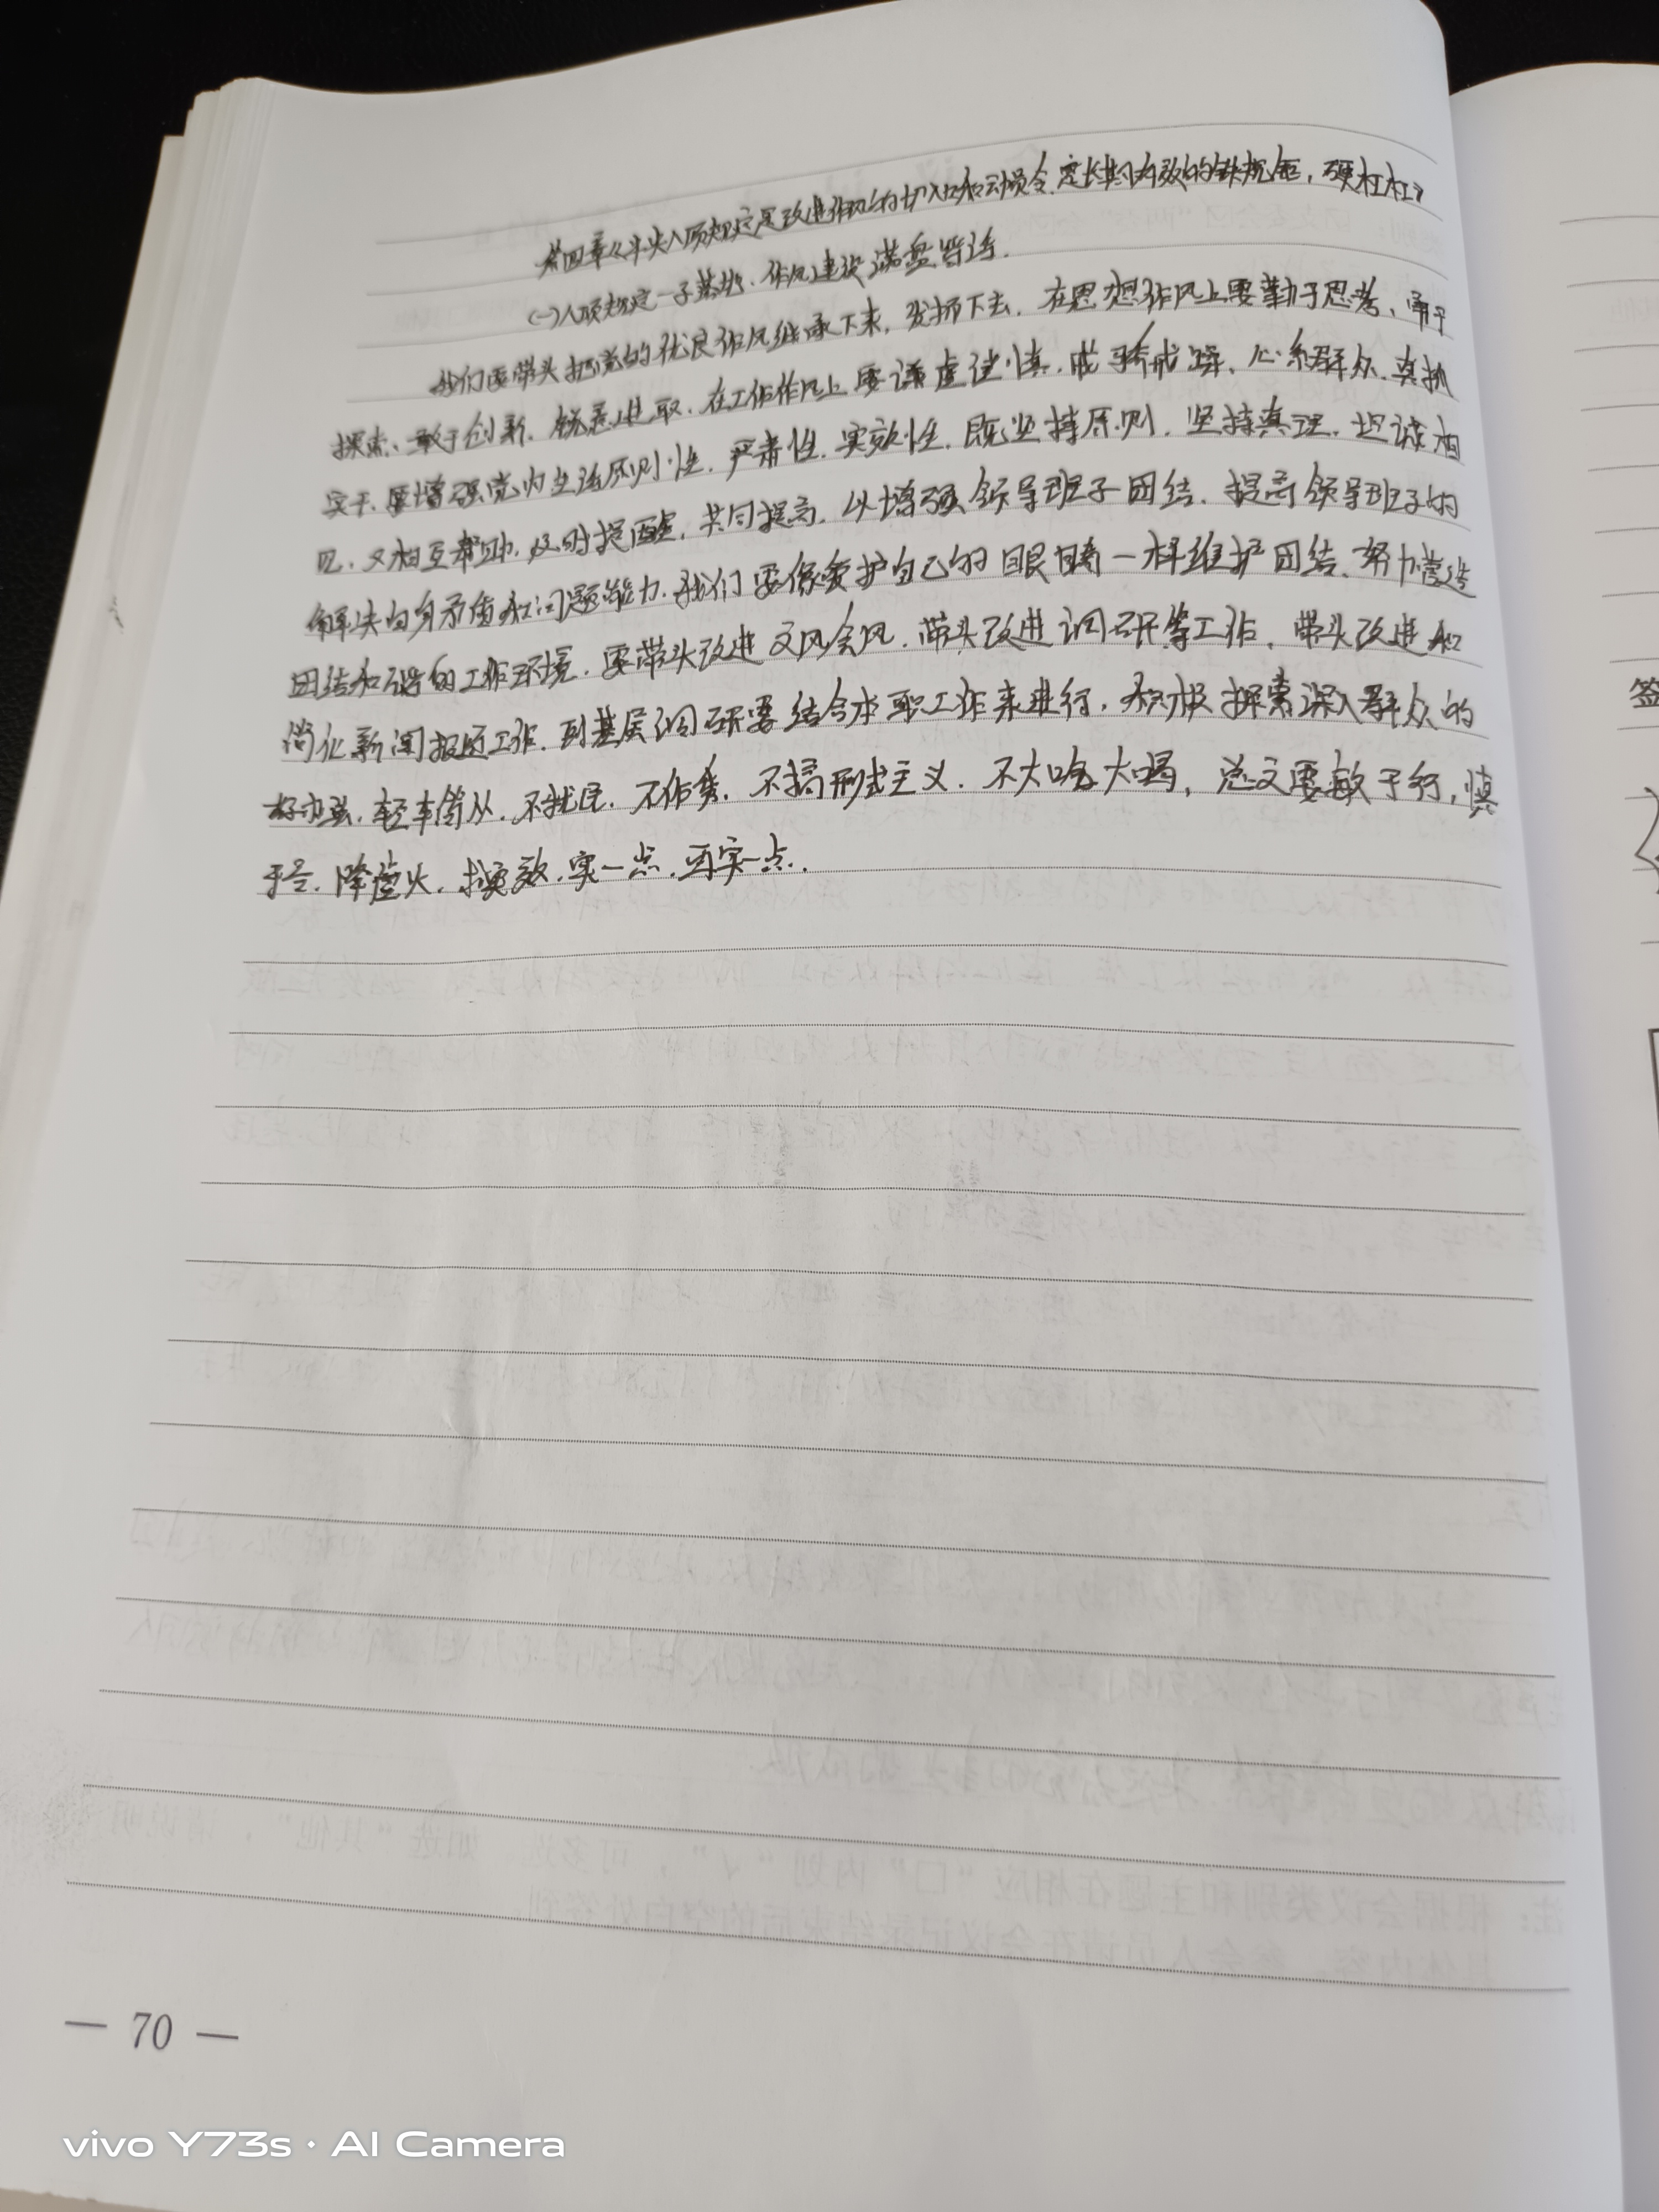 第四章《中央八项规定是改进作风的切入口和动员令.是长期有效的铁规矩,硬杠杠》
(一)八项规定一子落地、作风建设满盘皆活.
我们要带头把党的优良作风继承下来,发扬下去.在思想作风上要勤于思考、勇于
探索、敢于创新.锐意进取.在工作作风上要谦虚谨慎.戒骄戒躁、心系群众.真抓
实干.要增强党内生活原则性.严肃性.实效性.既坚持原则.坚持真理.坦诚相
见.又相互帮助.及时提醒.共同提高.以增强领导班子团结.提高领导班子的
解决自身矛盾和问题能力.我们要像爱护自己的眼睛一样维护团结.努力营造
团结和谐的工作环境.要带头改进文风会风.带头改进调研等工作.带头改进和
简化新闻报道工作.到基层调研要结合本职工作来进行,积极探索深入群众的
好办法.轻车简从.不扰民.不作秀.不搞形式主义.不大吃大喝,总之要敏于行,慎
于言.降虚火.求实效.实一点.再实一点.
签
— 70 —
vivo Y73s · AI Camera